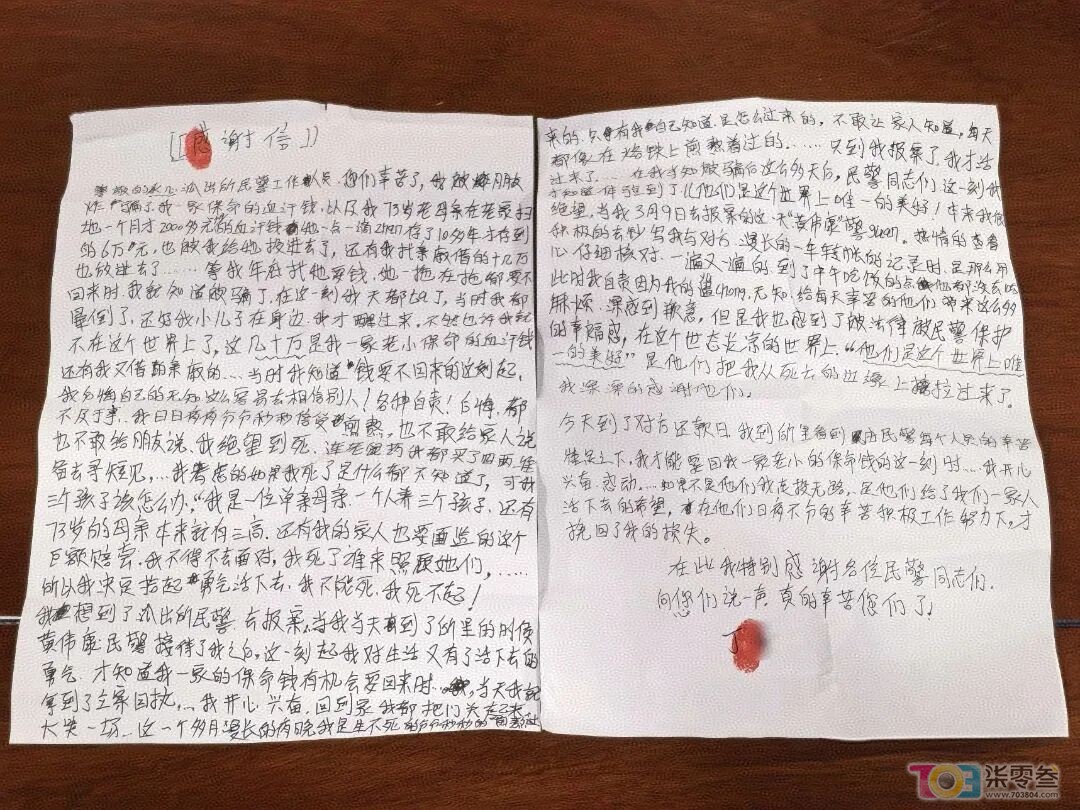 [[感谢信]]
尊敬的 派出所民警工作人员. 您们辛苦了, 我被 朋友
骗了我一家保命的血汗钱, 以及我73岁老母亲在老家扫
地一个月才2000多元的血汗钱 一点一滴 存了10多年才存到
的6万元, 也被我给他投进去了, 还有我找亲戚借的十几万
也放进去了...... 等我年后找他要钱, 他一拖在拖都要不
回来时. 我就知道被骗了, 在这一刻我天都塌了, 当时我都
晕倒了, 还好我小儿子在身边. 我才醒过来, 不然也许我就
不在这个世界上了, 这几十万是我一家老小保命的血汗钱
还有我又借亲戚的... 当时我知道 钱要不回来的这刻起,
我分悔自己的无知 这么容易去相信别人! 各种自责! 自悔, 都
不及于事. 我日日夜夜分分秒秒倍受煎熬, 也不敢给家人说
也不敢给朋友说. 我绝望到死. 连老鼠药我都买了四两 准
备去寻短见, ... 我考虑的如果我死了是什么都不知道了, 可我
三个孩子该怎么办, "我是一位单亲母亲. 一个人养三个孩子. 还有
73岁的母亲 本来就有三高, 还有我的家人也要面监的这个
巨额赔尝. 我不得不去面对, 我死了谁来照顾她们, ......
所以我决定拾起 勇气活下去. 我不能死. 我死不起!
我想到了派出所民警. 去报案, 当我当天到了所里的时侯
黄伟康 民警接待了我之后, 这一刻起我对生活又有了活下去的
勇气. 才知道我一家的保命钱有机会要回来时... 当天我就
拿到了立案回执... 我开心 兴奋. 回到家我都把门关起来
大哭一场. 这一个多月漫长的夜晚我是生不死
来的. 只有我自己知道是怎么过来的, 不敢让家人知道, 每天
都像在 煎熬着过的...... 只到我报案了, 我才活
过来了... 在我才知被骗后这么多天后, 民警同志们这一刻
才知道 体验到了(他们是这个世界上唯一的美好! 本来我很
绝望, 当我3月9日去报案的这一天"黄伟康"警guan. 热情的查看
积极的去抄写我与对方漫长的一车转账的记录时. 是那么用
心仔细核对. 一遍又一遍的. 到了中午吃饭的点他都没去吃
此时我自责因为我的 chong, 无知. 给每天辛苦的他们带来这么多
麻烦. 深感到歉意, 但是我也感到了被法律被民警保护
的幸福感, 在这个世态炎凉的世界上. "他们是这个世界上唯
一的美好" 是他们把我从死去的边缘上拉过来了.
我深深的感谢他们.
今天到了对方还款日. 我到所里看到 民警每个人员的辛苦
之下, 我才能要回我一家老小的保命钱的这一刻时... 我开心
兴奋. 感动... 如果不是他们我走投无路. 是他们给了我们一家人
活下去的希望, 在他们日夜不分的辛苦积极工作努力下, 才
挽回了我的损失.
在此我特别感谢各位民警同志们.
向您们说一声. 真的辛苦您们了!
丁
703 柒零叁
www.703804.com